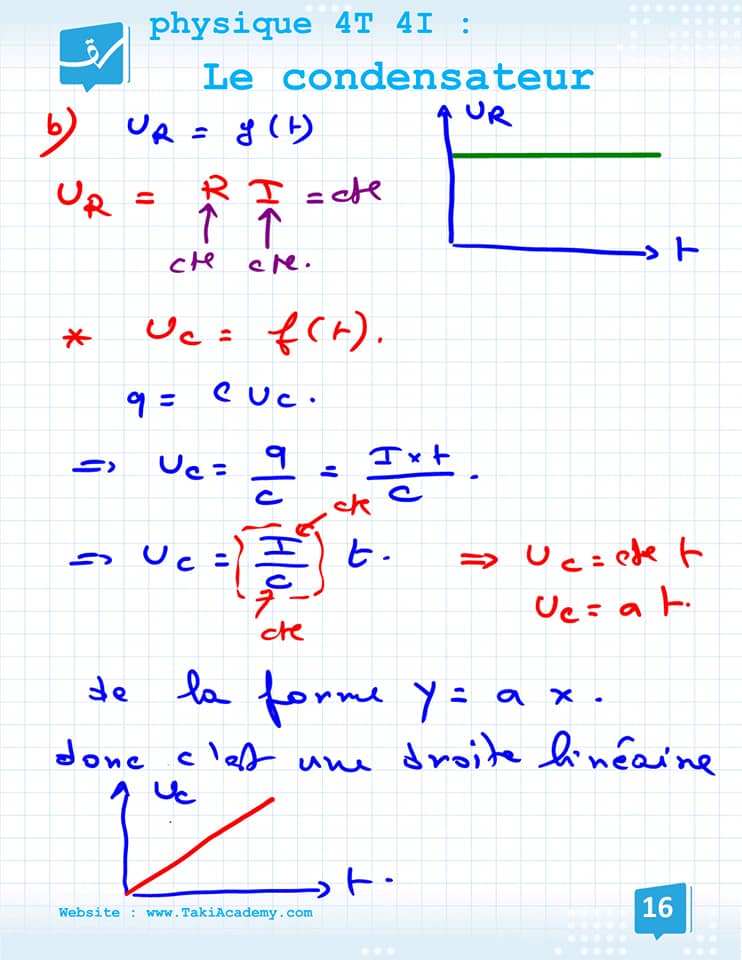 physique 4T 4I :
Le condensateur
b) UR = f(t)
UR
t
UR = R I = cte
cte cte.
* Uc = f(t).
q = C Uc.
=> Uc = q/C = I×t/C.
cte
=> Uc = (I/C) t. => Uc = cte t
cte
Uc = a t.
de la forme y = a x.
donc c'est une droite linéaire
Uc
t.
Website : www.TakiAcademy.com
16